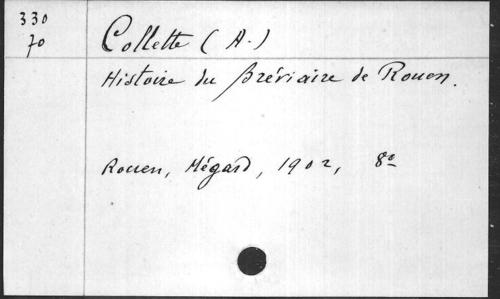 330
70
Collette (A.)
Histoire du Bréviaire de Rouen.
Rouen, Mégard, 1902, 8º